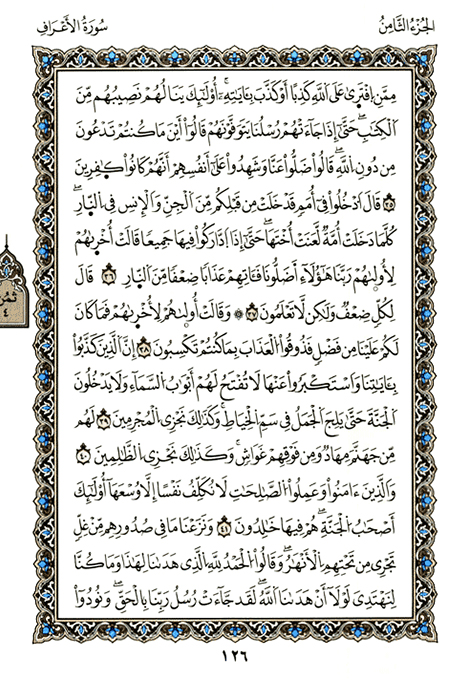 الجُزْءُ الثَّامِنُ
سُورَةُ الأَعْرَافِ
مِمَّنِ اِفْتَرٜىٰ عَلَى اَللَّهِ كَذِباً اَوْ كَذَّبَ بِـَٔايَٰتِهِۦٓۖ أُوْلَٰٓئِكَ يَنَالُهُمْ نَصِيبُهُم مِّنَ
اَلْكِتَٰبِۖ حَتَّىٰٓ إِذَا جَآءَتْهُمْ رُسُلُنَا يَتَوَفَّوْنَهُمْ قَالُوٓاْ أَيْنَ مَا كُنتُمْ تَدْعُونَ
مِن دُونِ اِللَّهِۖ قَالُواْ ضَلُّواْ عَنَّا وَشَهِدُواْ عَلَىٰٓ أَنفُسِهِمُۥٓ أَنَّهُمْ كَانُواْ كَٰفِرِينَ
٣٥ قَالَ اَدْخُلُواْ فِےٓ أُمَمٍ قَدْ خَلَتْ مِن قَبْلِكُم مِّنَ اَلْجِنِّ وَالْإِنسِ فِے اِلنَّارِۖ
كُلَّمَا دَخَلَتُ ا۟مَّةٌ لَّعَنَتُ ا۟خْتَهَاۖ حَتَّىٰٓ إِذَا اَ۪دَّارَكُواْ فِيهَا جَمِيعاً قَالَتُ ا۟خْرٜىٰهُمْ
لِأُولَىٰهُمْ رَبَّنَا هَٰٓؤُلَآءِ اَ۬ضَلُّونَا فَـَٔاتِهِمْ عَذَاباً ضِعْفاً مِّنَ اَلنَّارِۖ ٣٦ قَالَ
لِكُلٍّ ضِعْفٌ وَلَٰكِن لَّا تَعْلَمُونَۖ ٣٧ ۞ وَقَالَتُ ا۟ولَىٰهُمْ لِأُخْرٜىٰهُمْ فَمَا كَانَ
لَكُمْ عَلَيْنَا مِن فَضْلٍ فَذُوقُواْ اُلْعَذَابَ بِمَا كُنتُمْ تَكْسِبُونَۖ ٣٨ إِنَّ اَلَّذِينَ كَذَّبُواْ
بِـَٔايَٰتِنَا وَاسْتَكْبَرُواْ عَنْهَا لَا تُفَتَّحُ لَهُمُۥٓ أَبْوَٰبُ اُلسَّمَآءِ وَلَا يَدْخُلُونَ
اَلْجَنَّةَ حَتَّىٰ يَلِجَ اَلْجَمَلُ فِے سَمِّ اِلْخِيَاطِۖ وَكَذَٰلِكَ نَجْزِے اِلْمُجْرِمِينَۖ ٣٩ لَهُم
مِّن جَهَنَّمَ مِهَادٌ وَمِن فَوْقِهِمْ غَوَاشٍۖ وَكَذَٰلِكَ نَجْزِے اِلظَّٰلِمِينَۖ ٤٠
وَالَّذِينَ ءَامَنُواْ وَعَمِلُواْ اُلصَّٰلِحَٰتِ لَا نُكَلِّفُ نَفْساً اِلَّا وُسْعَهَآ أُوْلَٰٓئِكَ
أَصْحَٰبُ اُلْجَنَّةِۖ هُمْ فِيهَا خَٰلِدُونَۖ ٤١ وَنَزَعْنَا مَا فِے صُدُورِهِم مِّنْ غِلٍّ
تَجْرِے مِن تَحْتِهِمُ اُلْأَنْهَٰرُۖ وَقَالُواْ اُلْحَمْدُ لِلهِ اِلذِے هَدَىٰنَا لِهَٰذَا وَمَا كُنَّا
لِنَهْتَدِيَ لَوْلَآ أَنْ هَدَىٰنَا اَللَّهُۖ لَقَدْ جَآءَتْ رُسُلُ رَبِّنَا بِالْحَقِّۖ وَنُودُوٓاْ
ثمن
٤
١٢٦